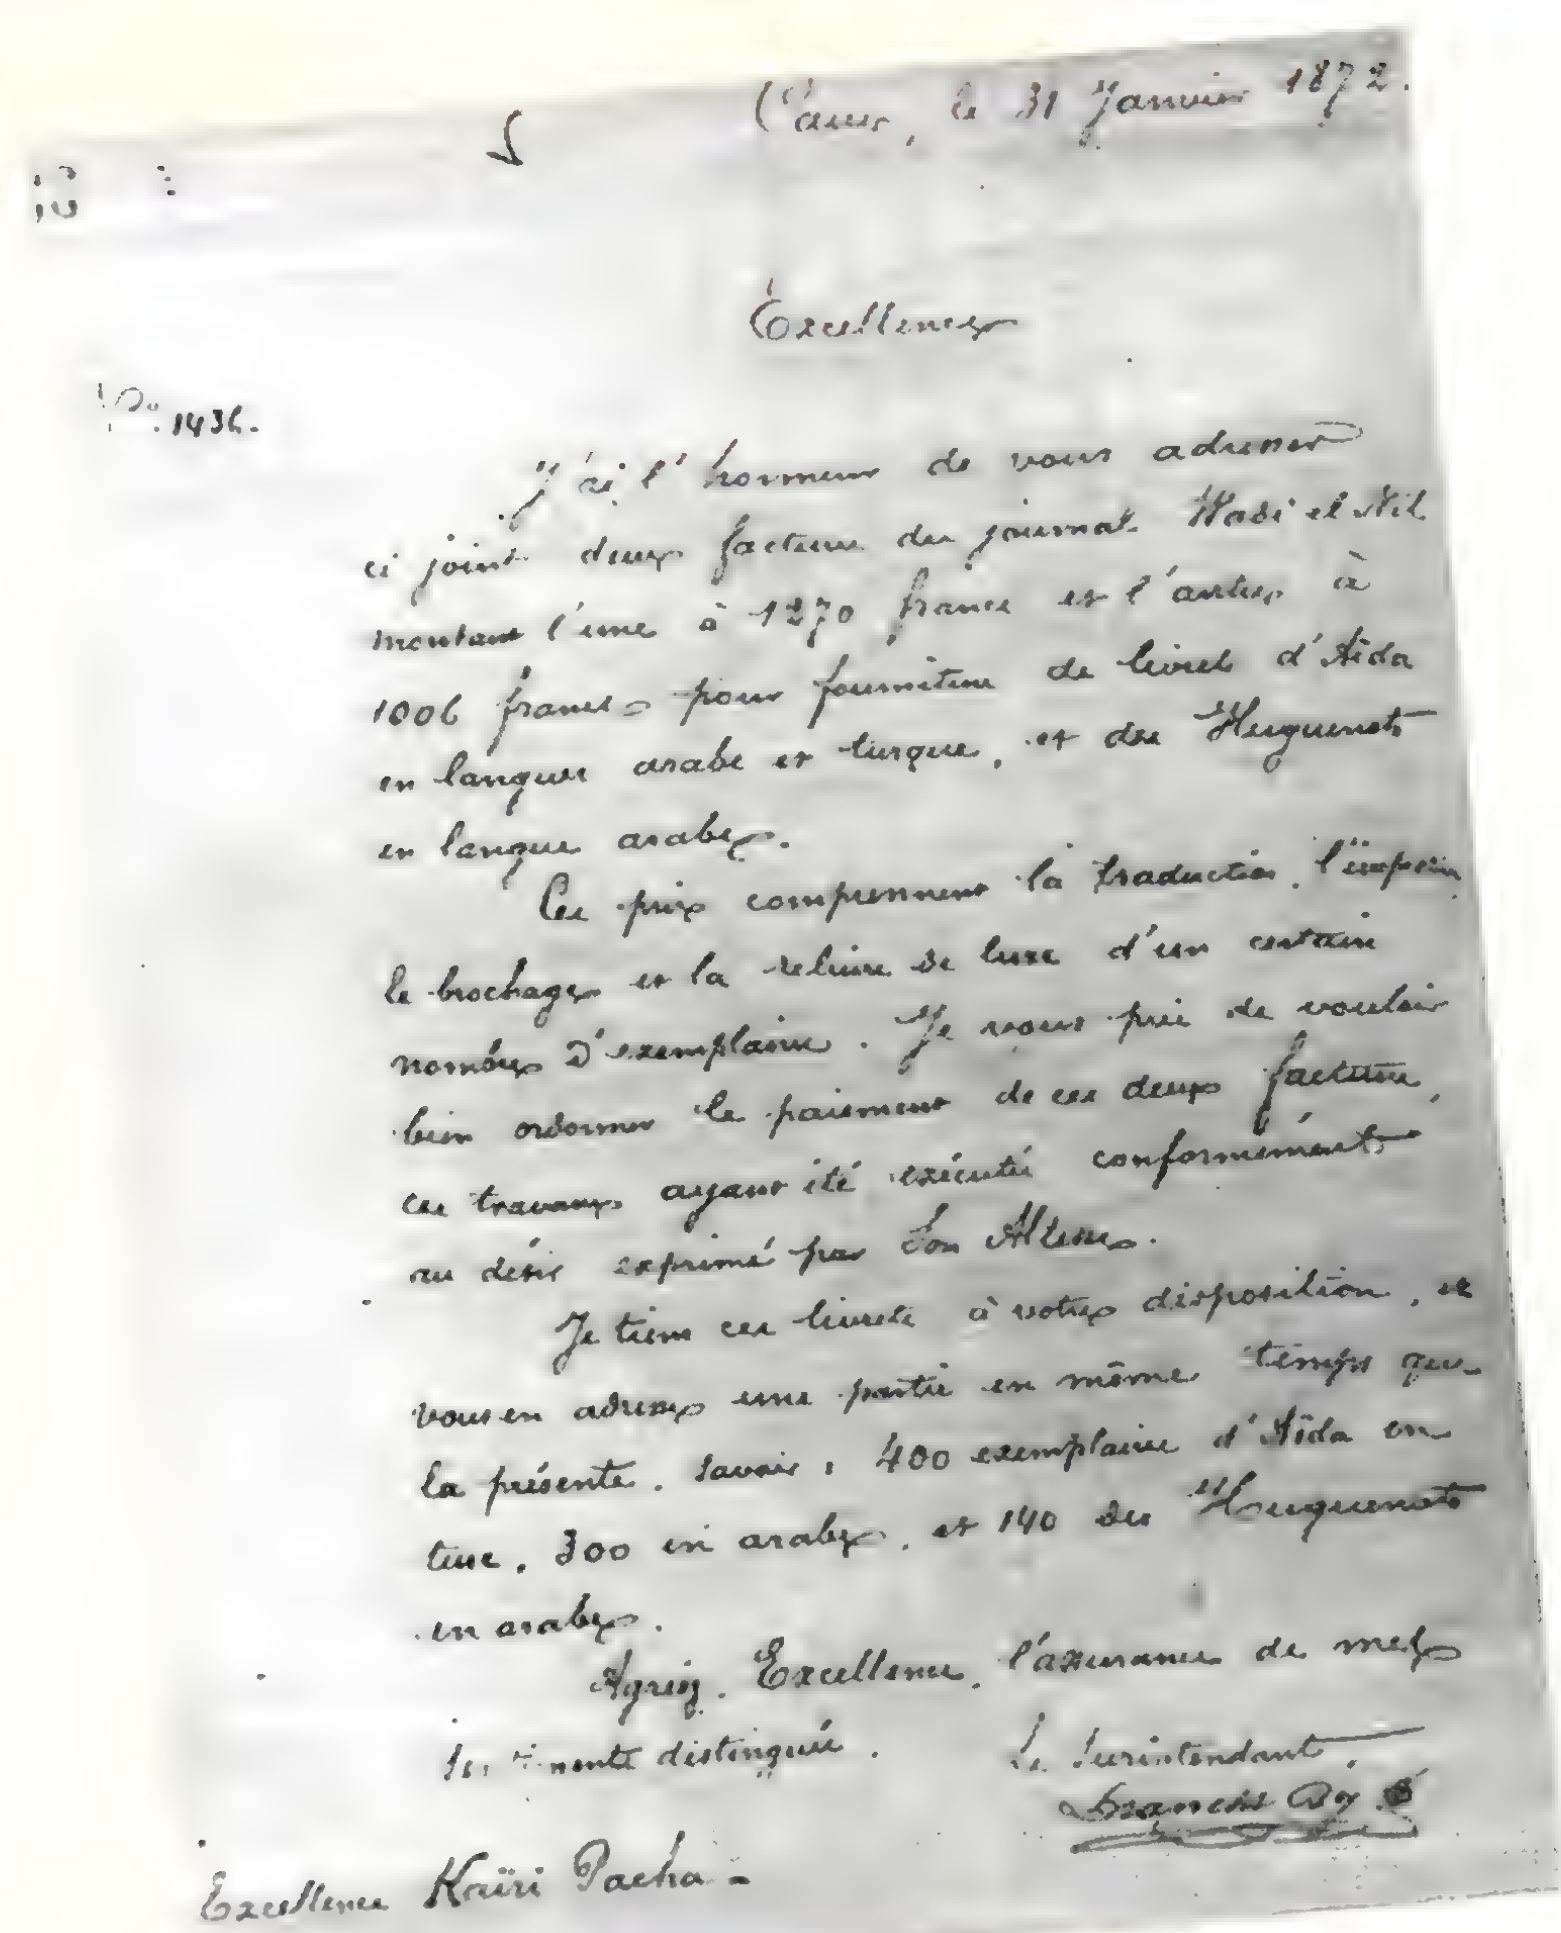 Caire, le 31 Janvier 1872.
Excellence
No. 1436.
J'ai l'honneur de vous adresser
ci joint deux factures du journal Wadi el Nil
montant l'une à 1270 francs et l'autre à
1006 francs = pour fourniture de livrets d'Aïda
en langues arabe et turque, et des Huguenots
en langue arabe.
Ces prix comprennent la traduction, l'impression
le brochage et la reliure de luxe d'un certain
nombre d'exemplaires. Je vous prie de vouloir
bien ordonner le paiement de ces deux factures,
ces travaux ayant été exécutés conformément
au désir exprimé par Son Altesse.
Je tiens ces livrets à votre disposition, et
vous en adresse une partie en même temps que
la présente, savoir : 400 exemplaires d'Aïda en
turc, 300 en arabe, et 140 des Huguenots
en arabe.
Agréez, Excellence, l'assurance de mes
sentiments distingués.
Le Surintendant,
Excellence Kaïri Pacha